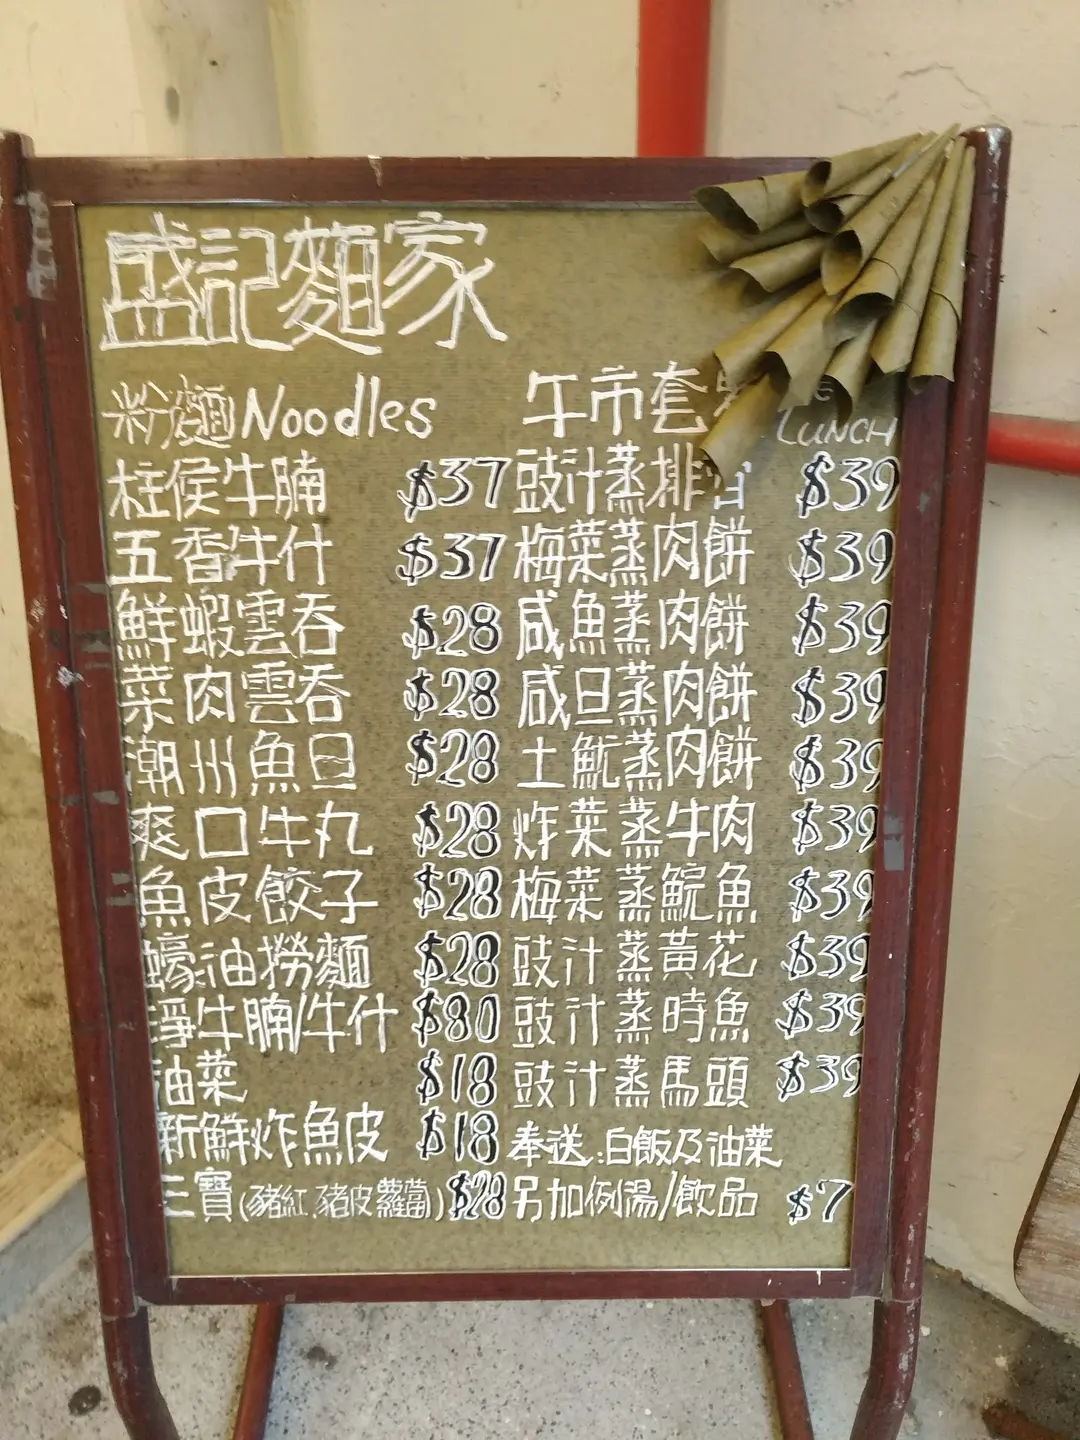 盛記麵家
粉麵 Noodles
柱侯牛腩 $37
五香牛什 $37
鮮蝦雲吞 $28
菜肉雲吞 $28
潮州魚旦 $28
爽口牛丸 $28
魚皮餃子 $28
蠔油撈麵 $28
淨牛腩/牛什 $80
油菜 $18
新鮮炸魚皮 $18
三寶(豬紅,豬皮蘿蔔) $28
午市套 LUNCH
豉汁蒸排骨 $39
梅菜蒸肉餅 $39
咸魚蒸肉餅 $39
咸旦蒸肉餅 $39
土魷蒸肉餅 $39
炸菜蒸牛肉 $39
梅菜蒸鯇魚 $39
豉汁蒸黃花 $39
豉汁蒸時魚 $39
豉汁蒸馬頭 $39
奉送:白飯及油菜
另加例湯/飲品 $7